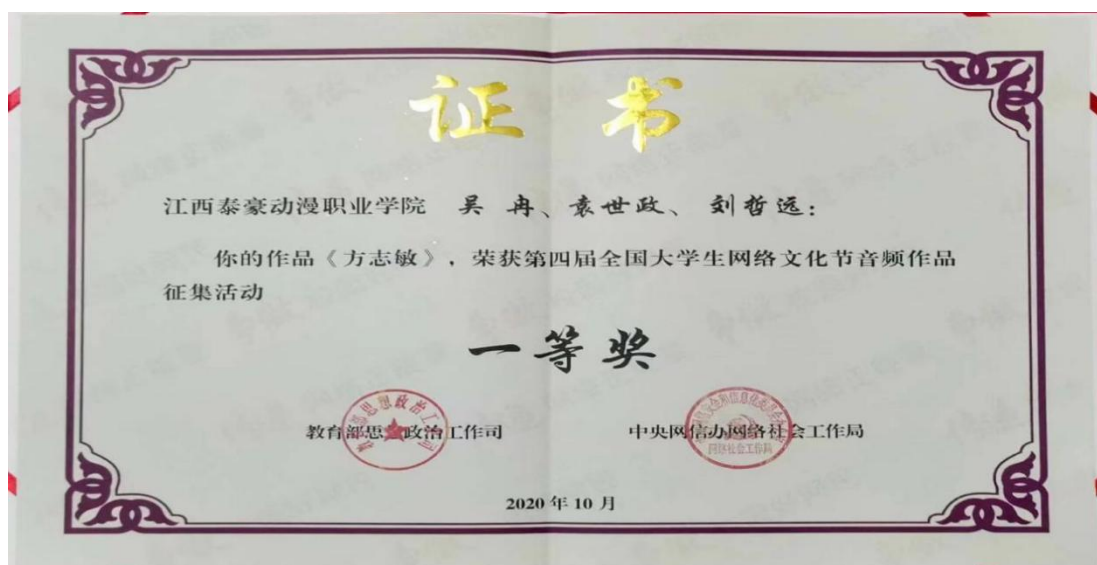 证书
江西泰豪动漫职业学院 吴冉、袁世政、刘哲远：
你的作品《方志敏》，荣获第四届全国大学生网络文化节音频作品
征集活动
一等奖
教育部思想政治工作司 中央网信办网络社会工作局
2020年10月